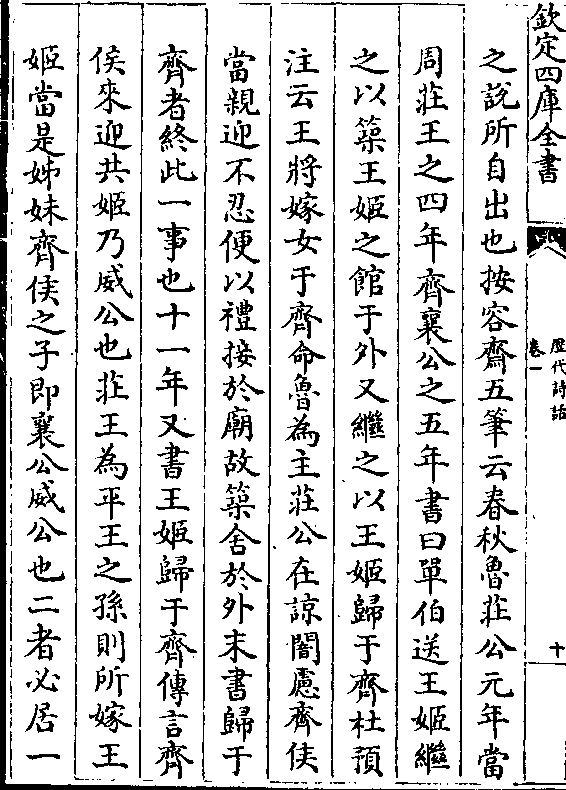 欽定四庫全書
歷代詩話
卷一
十
之說所自出也按容齋五筆云春秋魯莊公元年當
周莊王之四年齊襄公之五年書曰單伯送王姬繼
之以築王姬之館于外又繼之以王姬歸于齊杜預
注云王將嫁女于齊命魯為主莊公在諒闇慮齊侯
當親迎不忍便以禮接於廟故築舍於外末書歸于
齊者終此一事也十一年又書王姬歸于齊傳言齊
侯來迎共姬乃威公也莊王為平王之孫則所嫁王
姬當是姊妹齊侯之子即襄公威公也二者必居一